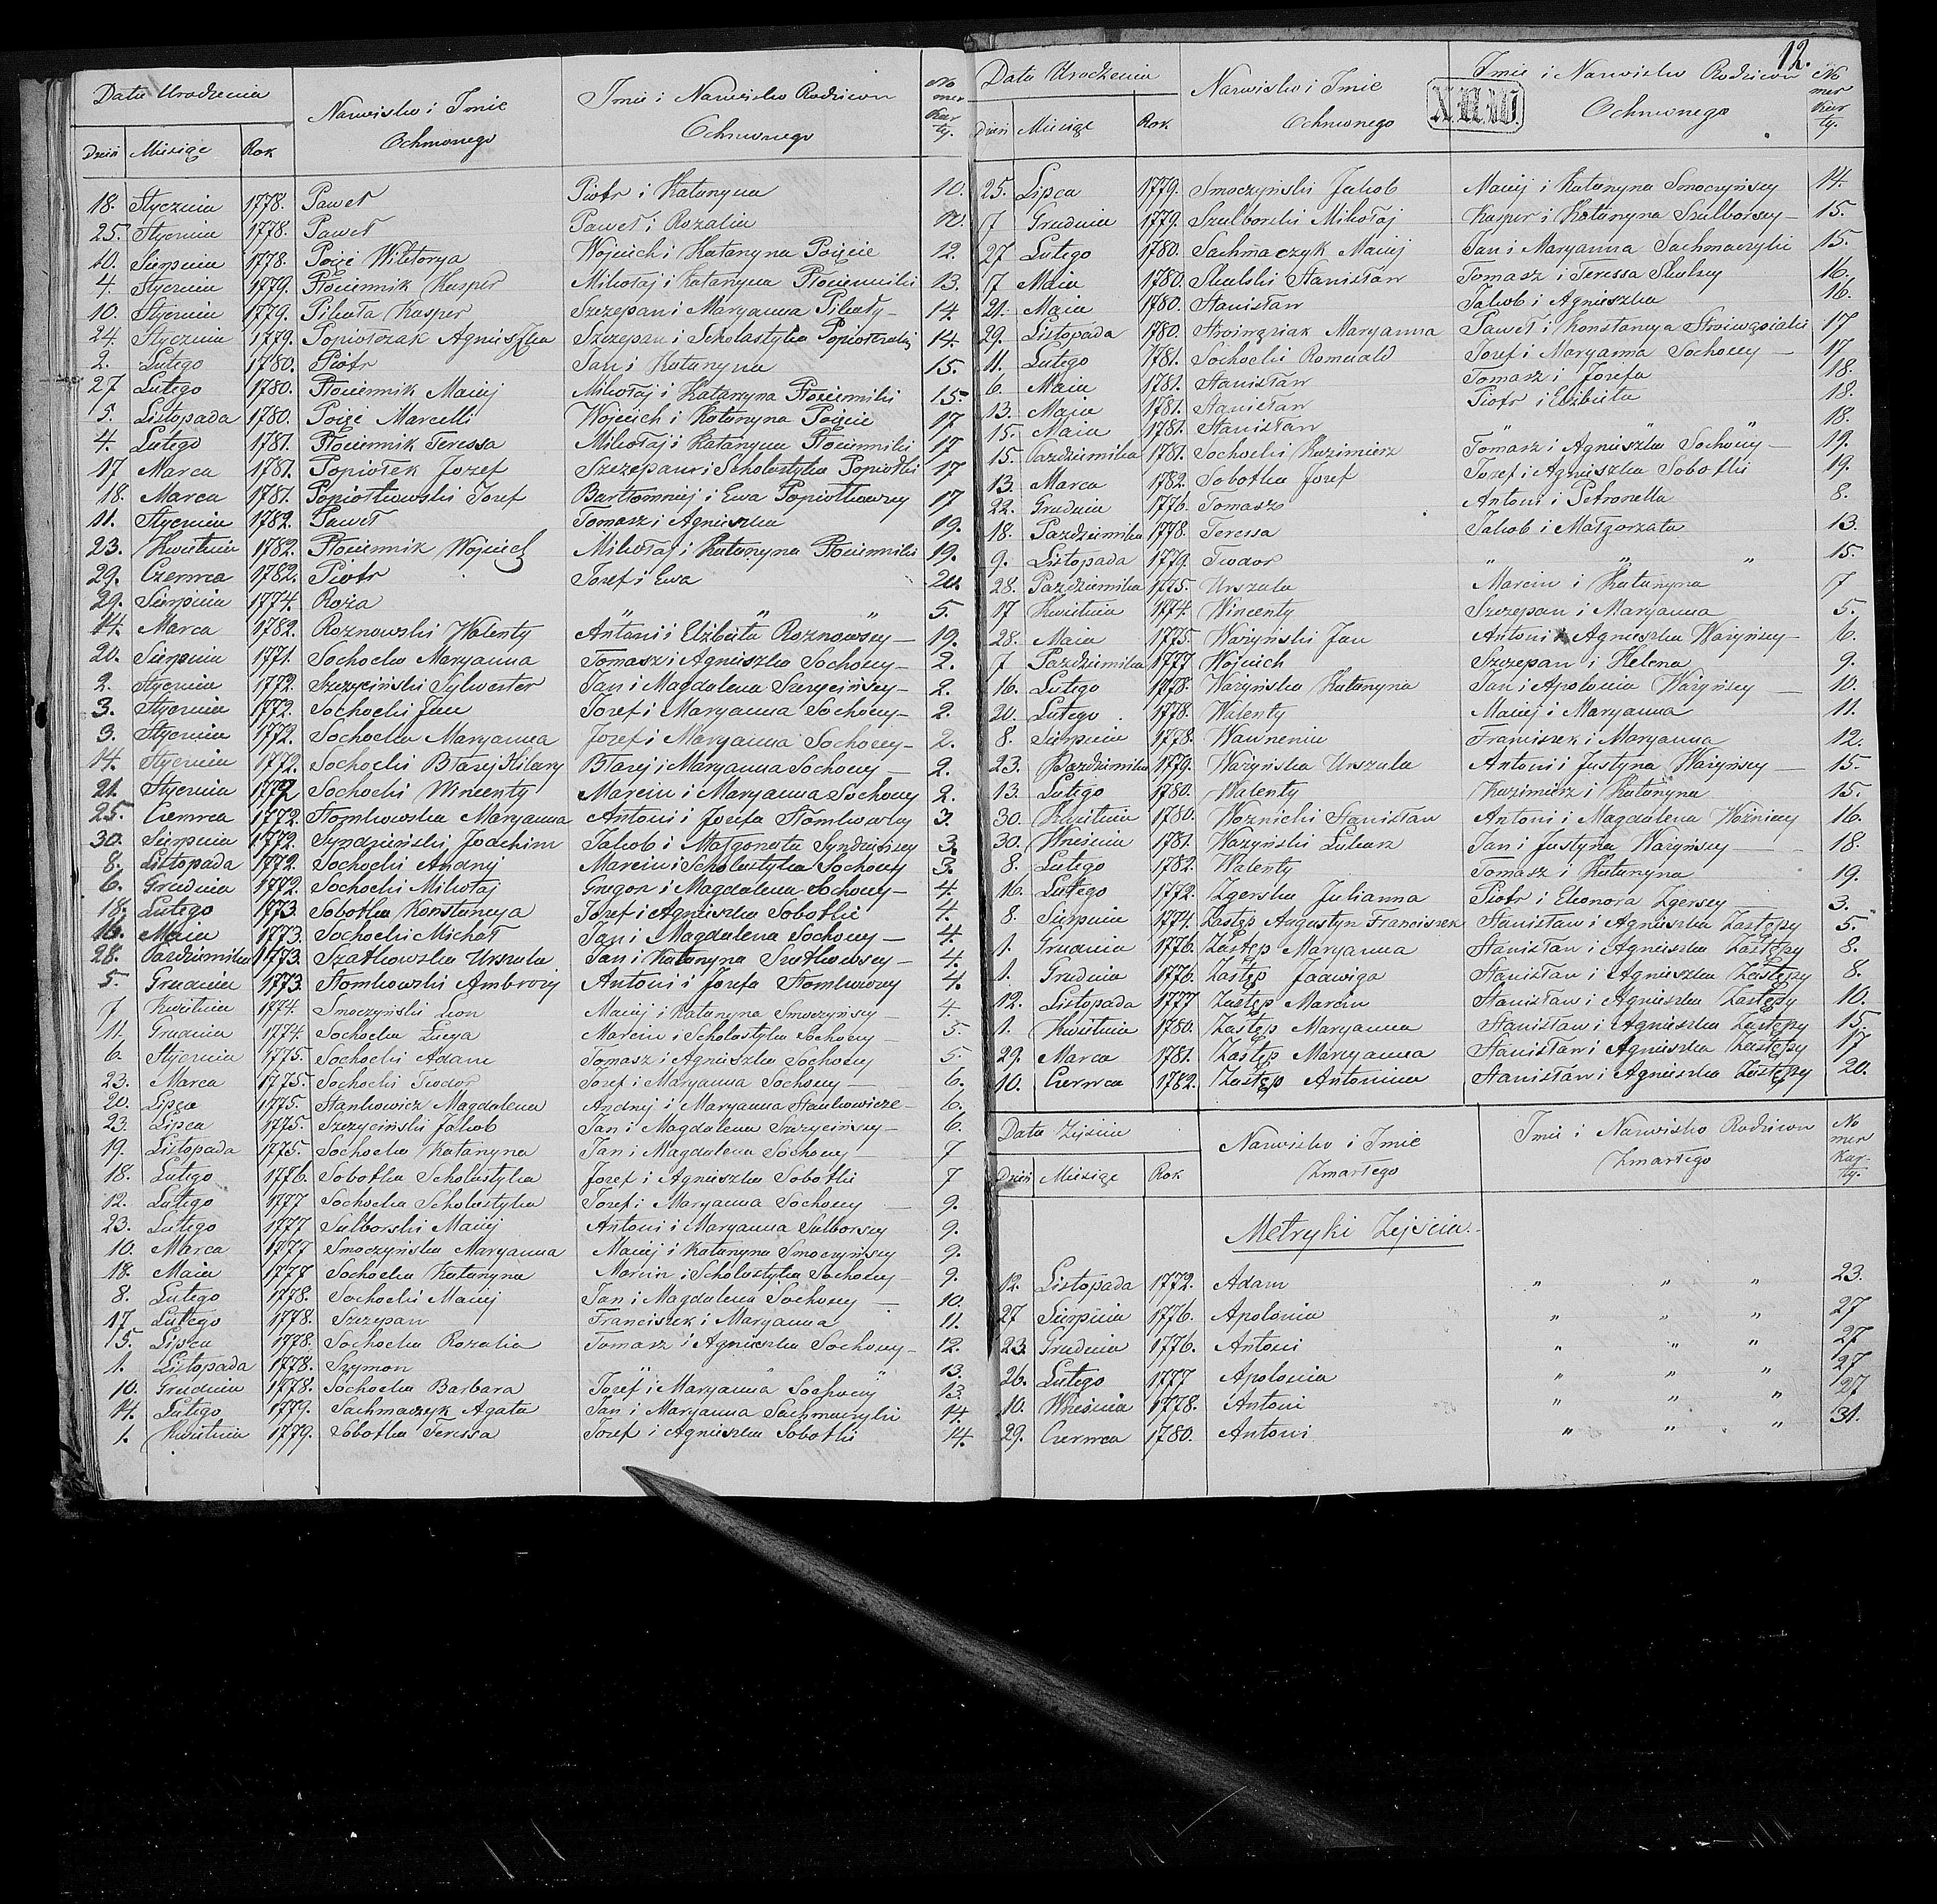 Data Urodzenia
Nazwisko i Imie Ochrzconego
Imie i Nazwisko Rodziców Ochrzconego
No mer Kar ty.
Dzień Miesiąc Rok
18. Stycznia 1778. Paweł Piotr i Katarzyna 10.
25. Stycznia 1778. Paweł Paweł i Rozalia 10.
10. Sierpnia 1778. Wiktorya Wojciech i Katarzyna 12.
4. Stycznia 1779. Płóciennik Kasper Mikołaj i Katarzyna Płóciennik 13.
10. Stycznia 1779. Pikuła Kasper Szczepan i Maryanna Pikuły 14.
24. Stycznia 1779. Popiołczak Agnieszka Szczepan i Scholastyka 14.
2. Lutego 1780. Piotr Jan i Katarzyna 15.
27 Lutego 1780. Płóciennik Maciej Mikołaj i Katarzyna Płóciennik 15.
5. Listopada 1780. Marcelli Wojciech i Katarzyna 17
4. Lutego 1781. Płóciennik Teressa Mikołaj i Katarzyna Płóciennik 17
17 Marca 1781. Popiołek Jozef Szczepan i Scholastyka Popiołki 17
18. Marca 1781. Popiołkowski Jozef Bartłomiej i Ewa Popiołkowscy 17
11. Stycznia 1782. Paweł Tomasz i Agnieszka 19.
23. Kwietnia 1782. Płóciennik Wojciech Mikołaj i Katarzyna Płóciennik 19.
29. Czerwca 1782. Piotr Jozef i Ewa 20.
29. Sierpnia 1774. Roża " " " 5.
14. Marca 1782. Roznowski Walenty Antoni i Elżbieta Roznowscy 19.
20. Sierpnia 1771. Sochocka Maryanna Tomasz i Agnieszka Sochoccy 2.
2. Stycznia 1772. Szczyciński Sylwester Jan i Magdalena Szczycińscy 2.
3. Stycznia 1772. Sochocki Jan Jozef i Maryanna Sochoccy 2.
3. Stycznia 1772. Sochocka Maryanna Jozef i Maryanna Sochoccy 2.
14. Stycznia 1772. Sochocki Błazej Hilary Błazej i Maryanna Sochoccy 2.
21. Stycznia 1772 Sochocki Wincenty Marcin i Maryanna Sochoccy 2.
25. Czerwca 1772. Słomkowska Maryanna Antoni i Jozefa Słomkowscy 3.
30. Sierpnia 1772. Joachim Jakob i Małgorzata 3.
8. Listopada 1772. Sochocki Andrzej Marcin i Scholastyka Sochoccy 3.
6. Grudnia 1772. Sochocki Mikołaj Gregor i Magdalena Sochoccy 4.
18. Lutego 1773. Sobotka Konstancya Jozef i Agnieszka Sobotki 4.
16. Maia 1773. Sochocki Michał Jan i Magdalena Sochoccy 4.
28. Października 1773. Szatkowska Urszula Jan i Katarzyna Szatkowscy 4.
5. Grudnia 1773. Słomkowski Ambroży Antoni i Jozefa Słomkowscy 4.
7 Kwietnia 1774. Smoczyński Leon Maciej i Katarzyna Smoczyńscy 4.
11. Grudnia 1774. Sochocka Łucya Marcin i Scholastyka Sochoccy 5.
6. Stycznia 1775. Sochocki Adam Tomasz i Agnieszka Sochoccy 5.
23. Marca 1775. Sochocki Teodor Jozef i Maryanna Sochoccy 6.
20. Lipca 1775. Stankowicz Magdalena Andrzej i Maryanna Stankowicze 6.
23. Lipca 1775. Szczyciński Jakob Jan i Magdalena Szczycińscy 6.
19. Listopada 1775. Sochocka Katarzyna Jan i Magdalena Sochoccy 7
18. Lutego 1776. Sobotka Scholastyka Jozef i Agnieszka Sobotki 7
12. Lutego 1777 Sochocka Scholastyka Jozef i Maryanna Sochoccy 9.
23. Lutego 1777 Sulborski Maciej Antoni i Maryanna Sulborscy 9.
10. Marca 1777 Smoczyńska Maryanna Maciej i Katarzyna Smoczyńscy 9.
18. Maia 1777 Sochocka Katarzyna Marcin i Scholastyka Sochoccy 9.
8. Lutego 1778. Sochocki Maciej Jan i Magdalena Sochoccy 10.
17. Lutego 1778. Szczepan Franciszek i Maryanna 11.
15. Lipca 1778. Sochocka Rozalia Tomasz i Agnieszka Sochoccy 12.
1. Listopada 1778. Szymon " " " 13.
10. Grudnia 1778. Sochocka Barbara Jozef i Maryanna Sochoccy 13.
14. Lutego 1779. Sachmaczyk Agata Jan i Maryanna Sachmaczyki 14.
1. Kwietnia 1779. Sobotka Teressa Jozef i Agnieszka Sobotki 14.
12.
Data Urodzenia
Nazwisko i Imie Ochrzconego
Imie i Nazwisko Rodziców Ochrzconego
No mer Kar ty.
Dzień Miesiąc Rok
25. Lipca 1779. Smoczyński Jakob Maciej i Katarzyna Smoczyńscy 14.
7 Grudnia 1779. Szulborski Mikołaj Kasper i Katarzyna Szulborscy 15.
27 Lutego 1780. Sachmaczyk Maciej Jan i Maryanna Sachmaczyki 15.
7 Maia 1780. Skulski Stanisław Tomasz i Teressa Skulscy 16.
21. Maia 1780. Stanisław Jakob i Agnieszka 16.
29. Listopada 1780. Maryanna Paweł i Konstancya 17
11. Lutego 1781. Sochocki Romuald Jozef i Maryanna Sochoccy 17
6. Maia 1781. Stanisław Tomasz i Jozefa 18.
13. Maia 1781. Stanisław Piotr i Elżbieta 18.
15. Maia 1781. Stanisław " " " 18.
15. Października 1781. Sochocki Kazimierz Tomasz i Agnieszka Sochoccy 19.
13. Marca 1782. Sobotka Jozef Jozef i Agnieszka Sobotki 19.
22. Grudnia 1776. Tomasz Antoni i Petronella 8.
18. Października 1778. Teressa Jakob i Małgorzata 13.
9. Listopada 1779. Teodor " " " 15.
28. Października 1775. Urszula Marcin i Katarzyna 7
17 Kwietnia 1774. Wincenty Szczepan i Maryanna 5.
28. Maia 1775. Ważyński Jan Antoni i Agnieszka Ważyńscy 6.
7 Października 1777 Wojciech Szczepan i Helena 9.
16. Lutego 1778. Ważyńska Katarzyna Jan i Apolonia Ważyńscy 10.
20. Lutego 1778. Walenty Maciej i Maryanna 11.
8. Sierpnia 1778. Franciszek i Maryanna 12.
23. Października 1779. Ważyńska Urszula Antoni i Justyna Ważyńscy 15.
13. Lutego 1780. Walenty Kazimierz i Katarzyna 15.
30. Kwietnia 1780. Woznicki Stanisław Antoni i Magdalena Woźniccy 16.
30. Września 1781. Ważyński Łukasz Jan i Justyna Ważyńscy 18.
8. Lutego 1782. Walenty Tomasz i Katarzyna 19.
16. Lutego 1772. Zgierska Julianna Piotr i Eleonora Zgierscy 3.
8. Sierpnia 1774. Zastęp Augustyn Franciszek Stanisław i Agnieszka Zastępy 5.
1. Grudnia 1776. Zastęp Maryanna Stanisław i Agnieszka Zastępy 8.
1. Grudnia 1776. Zastęp Jadwiga Stanisław i Agnieszka Zastępy 8.
12. Listopada 1777 Zastęp Marcin Stanisław i Agnieszka Zastępy 10.
1. Kwietnia 1780. Zastęp Maryanna Stanisław i Agnieszka Zastępy 15.
29. Marca 1781. Zastęp Maryanna Stanisław i Agnieszka Zastępy 17
10. Czerwca 1782. Zastęp Antonina Stanisław i Agnieszka Zastępy 20.
Data Zejścia
Nazwisko i Imie Zmarłego
Imie i Nazwisko Rodziców Zmarłego
No mer Kar- ty.
Dzień Miesiąc Rok
Metryki Zejścia.
12. Listopada 1772. Adam " " " 23.
27 Sierpnia 1776. Apolonia " " " 27
23. Grudnia 1776. Antoni " " " 27
26. Lutego 1777 Apolonia " " " 27
10. Września 1778. Antoni " " " 27
29. Czerwca 1780. Antoni " " " 31.